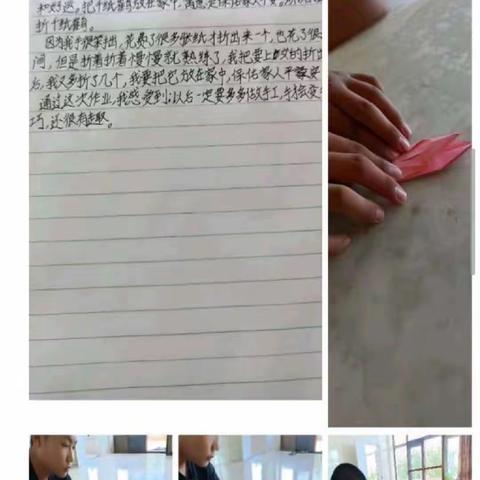 和好运。把千纸鹤放在家中，寓意是保佑家人平安。所以
折千纸鹤。
因为我手很笨拙，花费了很多张纸才折出来一个，也花了很
间，但是折着折着慢慢就熟练了，我把要上交的折出
后，我又多折了几个，我要把它放在家中，保佑家人平安
通过这次作业，我感受到以后一定要多多做手工，手会变
巧，还很有趣。